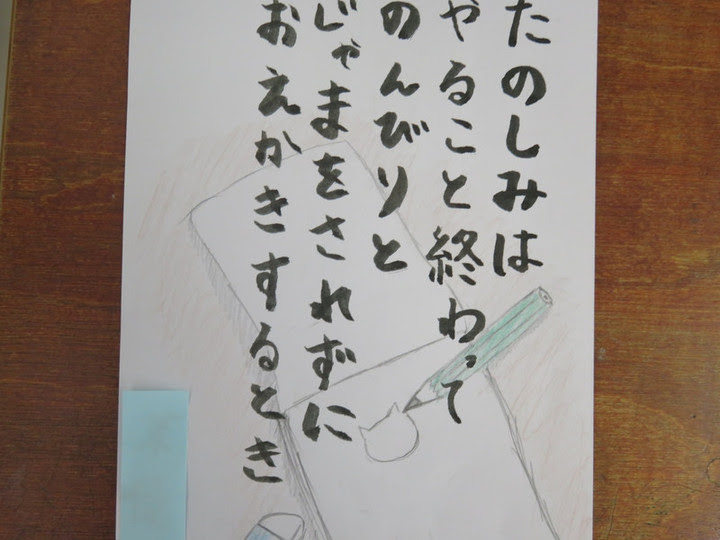 たのしみは
やること終わって
のんびりと
じゃまをされずに
おえかきするとき